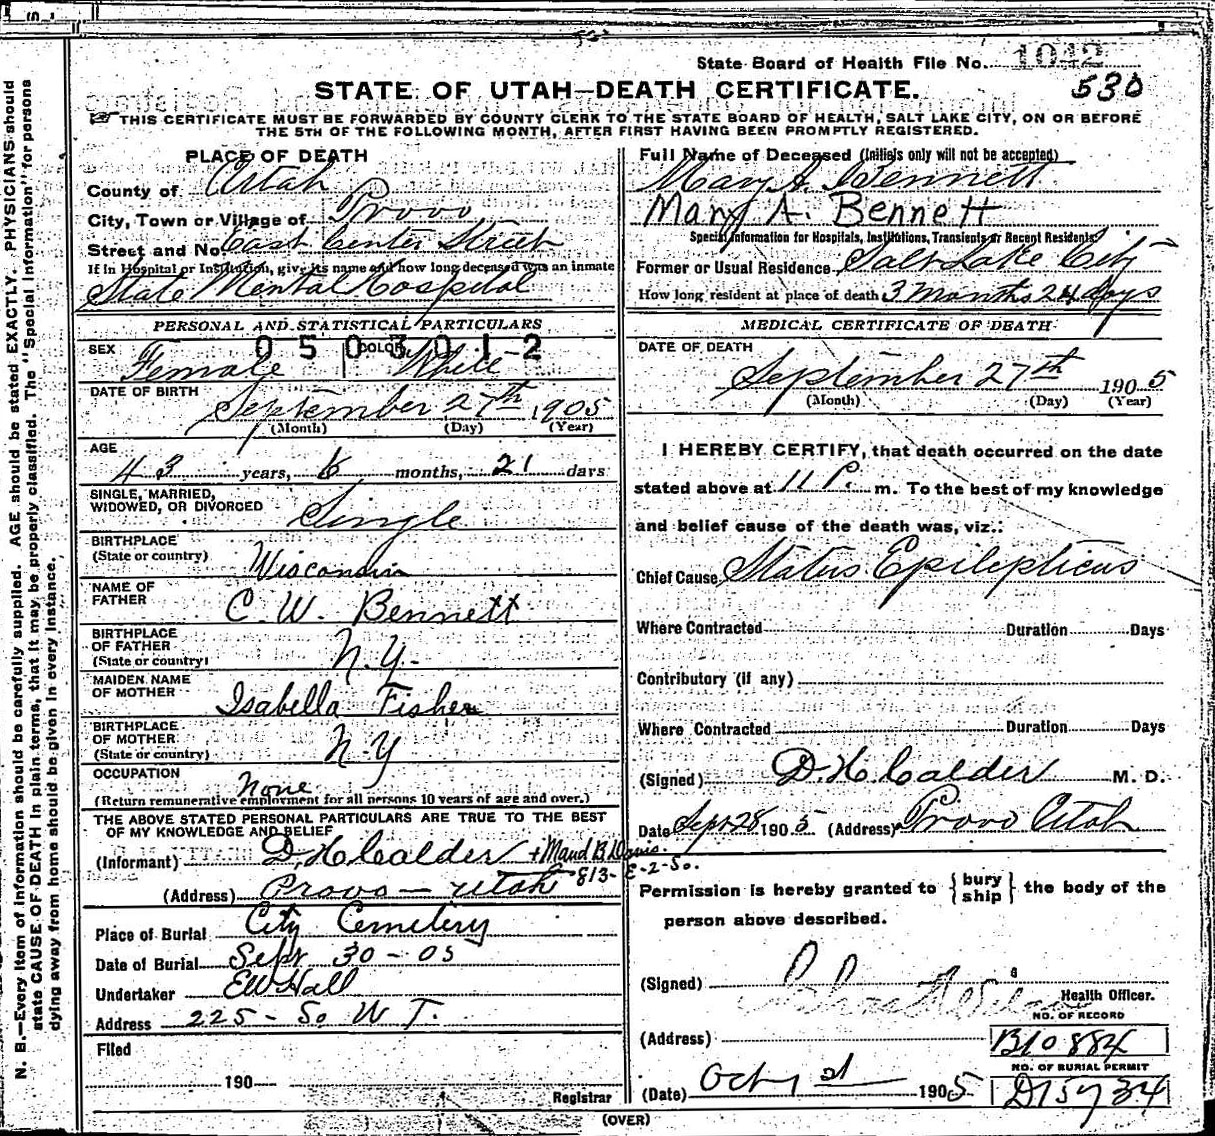 State Board of Health File No. 1042
530
STATE OF UTAH—DEATH CERTIFICATE.
THIS CERTIFICATE MUST BE FORWARDED BY COUNTY CLERK TO THE STATE BOARD OF HEALTH, SALT LAKE CITY, ON OR BEFORE
THE 5TH OF THE FOLLOWING MONTH, AFTER FIRST HAVING BEEN PROMPTLY REGISTERED.
PLACE OF DEATH
County of Utah
City, Town or Village of Provo
Street and No. East Center Street
If in Hospital or Institution, give its name and how long deceased was an inmate
State Mental Hospital
PERSONAL AND STATISTICAL PARTICULARS
0503012
SEX Female COLOR White
DATE OF BIRTH September 27th 1905
(Month) (Day) (Year)
AGE
43 years, 6 months, 21 days
SINGLE, MARRIED,
WIDOWED, OR DIVORCED Single
BIRTHPLACE
(State or country) Wisconsin
NAME OF
FATHER C. W. Bennett
BIRTHPLACE
OF FATHER
(State or country) N.Y.
MAIDEN NAME
OF MOTHER Isabella Fisher
BIRTHPLACE
OF MOTHER
(State or country) N.Y
OCCUPATION None
(Return remunerative employment for all persons 10 years of age and over.)
THE ABOVE STATED PERSONAL PARTICULARS ARE TRUE TO THE BEST
OF MY KNOWLEDGE AND BELIEF
(Informant) D. H. Calder + Maud B Davis.
(Address) Provo — Utah 813- E-2-So.
Place of Burial City Cemetery
Date of Burial Sept 30-05
Undertaker EW Hall
Address 225-So W T.
Filed
190
Registrar
Full Name of Deceased (Initials only will not be accepted)
Mary A. Bennett
Mary A. Bennett
Special Information for Hospitals, Institutions, Transients or Recent Residents
Former or Usual Residence Salt Lake City
How long resident at place of death 3 Months 24 days
MEDICAL CERTIFICATE OF DEATH
DATE OF DEATH
September 27th 1905
(Month) (Day) (Year)
I HEREBY CERTIFY, that death occurred on the date
stated above at 11 P. m. To the best of my knowledge
and belief cause of the death was, viz.:
Chief Cause Status Epilepticus
Where Contracted Duration Days
Contributory (if any)
Where Contracted Duration Days
(Signed) D. H. Calder M. D.
Date Sept 28 1905 (Address) Provo Utah
Permission is hereby granted to {bury ship} the body of the
person above described.
(Signed)
Health Officer.
NO. OF RECORD
(Address) B10884
NO. OF BURIAL PERMIT
(Date) Oct 1905 D15734
(OVER)
N. B.—Every item of information should be carefully supplied. AGE should be stated EXACTLY. PHYSICIANS should
state CAUSE OF DEATH in plain terms, that it may be properly classified. The "Special Information" for persons
dying away from home should be given in every instance.